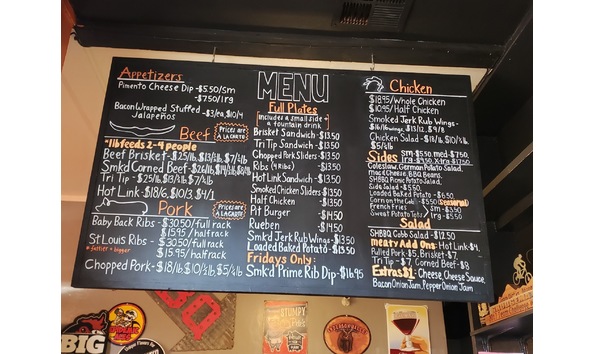 Appetizers
Pimento Cheese Dip - $5.50/sm
- $7.50/lrg
Bacon Wrapped Stuffed - $3/ea, $10/4
Jalapeños
Beef
Prices are
A LA CARTE
*1lb feeds 2-4 people
Beef Brisket - $25/lb, $13/½lb, $7/¼lb
Smkd Corned Beef - $26/lb, $14/½lb, $8/¼lb
Tri Tip - $25/lb, $13/½lb, $7/¼lb
Hot Link - $18/6, $10/3, $4/1
Pork
Prices are
A LA CARTE
Baby Back Ribs - $30.50/full rack
$15.95/half rack
St Louis Ribs - $30.50/full rack
* fattier + bigger
$15.95/half rack
Chopped Pork - $18/lb, $10/½lb, $5/¼lb
MENU
Full Plates
includes a small side +
a fountain drink
Brisket Sandwich - $13.50
Tri Tip Sandwich - $13.50
Chopped Pork Sliders - $13.50
Ribs (4 Ribs) - $13.50
Hot Link Sandwich - $13.50
Smoked Chicken Sliders - $13.50
Half Chicken - $13.50
Pit Burger - $14.50
Rueben - $14.50
Smk'd Jerk Rub Wings - $13.50
Loaded Baked Potato - $13.50
Fridays Only:
Smk'd Prime Rib Dip - $16.95
Chicken
$18.95/Whole Chicken
$10.95/Half Chicken
Smoked Jerk Rub Wings -
$16/16 wings, $13/12, $9/8
Chicken Salad - $18/lb, $10/½lb
$5/¼lb
Sides
sm - $5.50, med - $7.50,
lrg - $9.50, X-lrg - $17.50
Coleslaw, German Potato Salad,
Mac & Cheese, BBQ Beans,
SHBBQ Picnic Potato Salad,
Side Salad - $5.50
Loaded Baked Potato - $6.50
Corn on the Cob - $5.50 (seasonal)
French Fries
Sweet Potato Tots
sm - $3.50
lrg - $5.50
Salad
SHBBQ Cobb Salad - $12.50
meaty Add Ons: Hot Link - $4,
Pulled Pork - $5, Brisket - $7,
Tri Tip - $7, Corned Beef - $8
Extras $1: Cheese, Cheese Sauce,
Bacon Onion Jam, Pepper Onion Jam
BIG
STUMPY